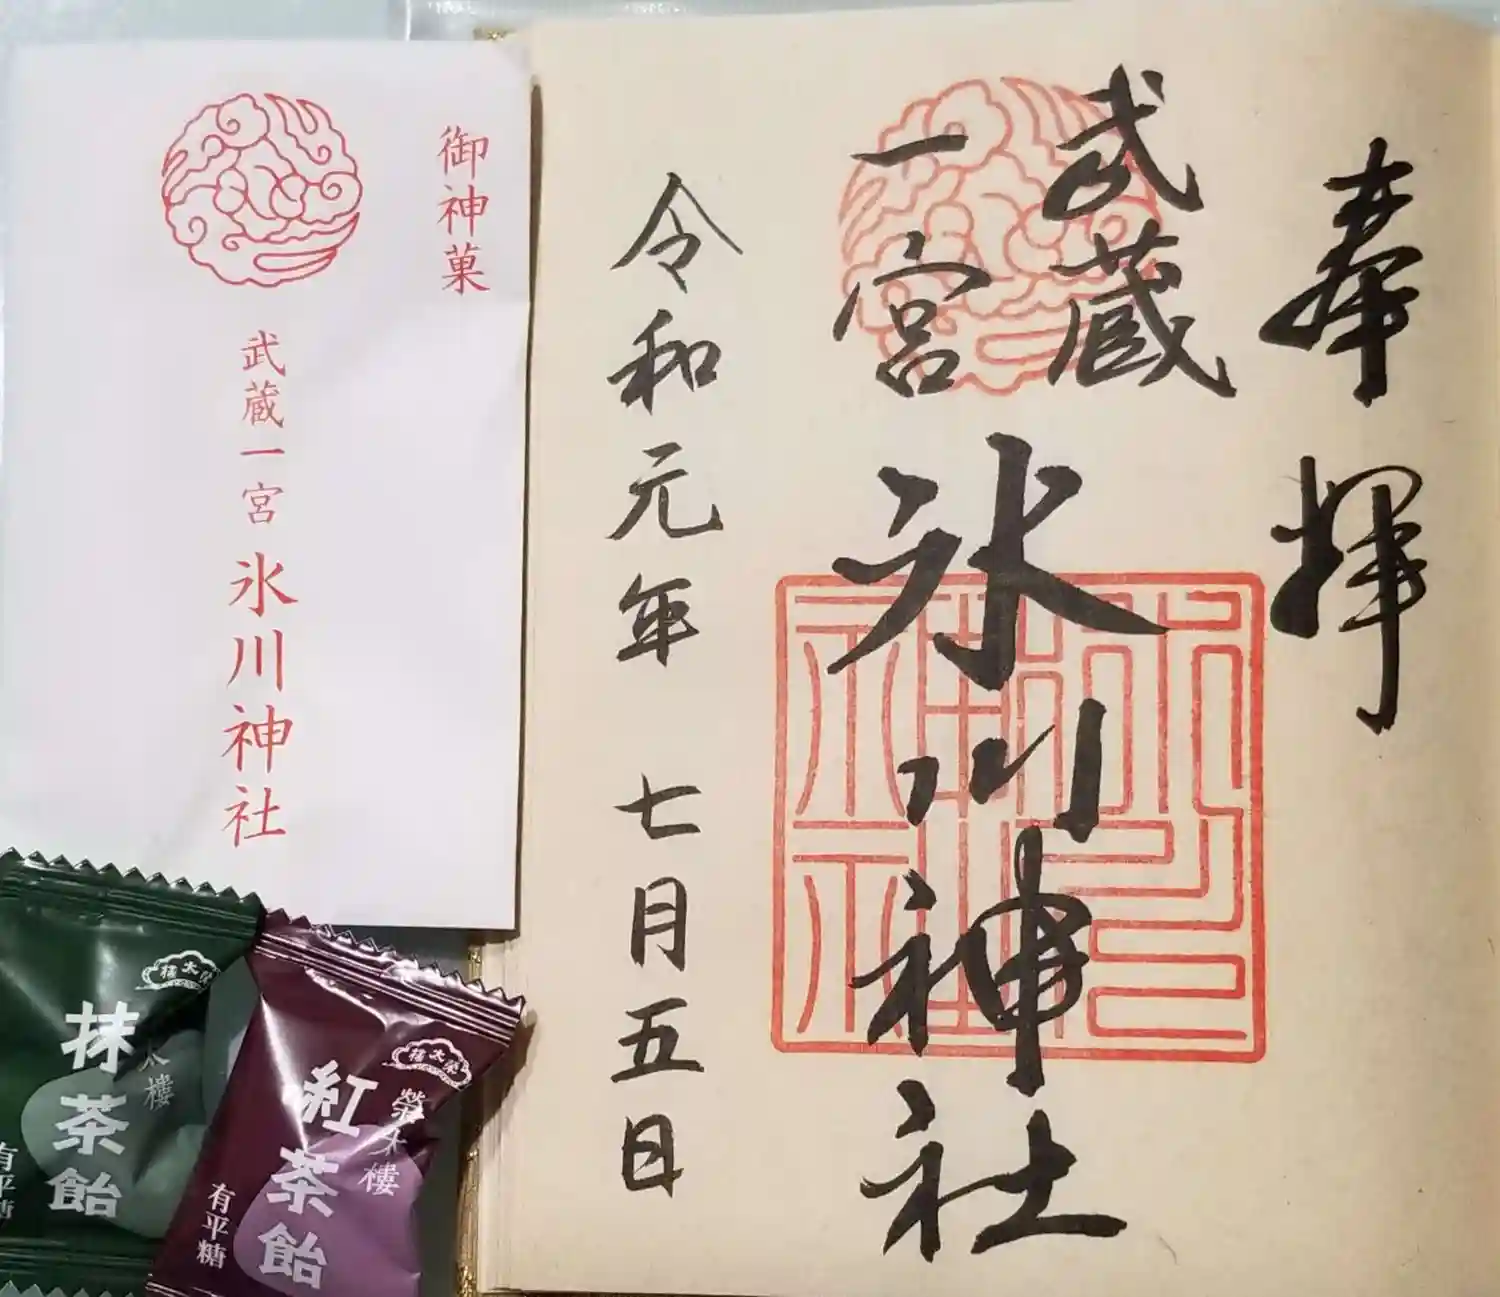 御神菓
武蔵一宮 氷川神社
奉拝
武蔵
一宮
氷川神社
令和元年 七月五日
榮太樓
抹茶飴
有平糖
榮太樓
榮太樓
紅茶飴
有平糖